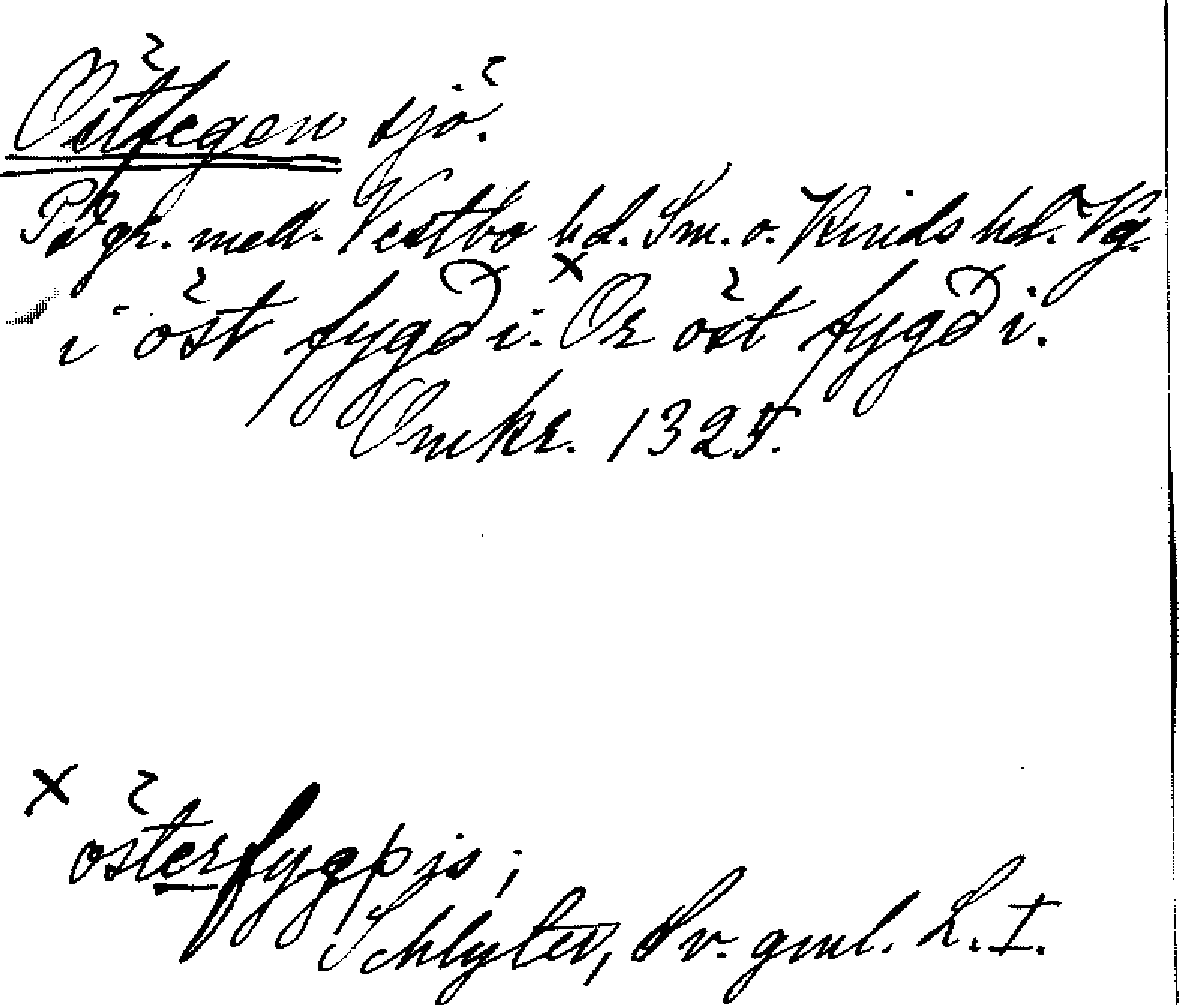 Östfegen sjö.
På gr. mell. Vestbo hd. Sm. o. Kinds hd. Vg.
i öst fygði. × Or öst fygði.
Omkr. 1325.
× österfygþis;
Schlyter, Sv. gml. L. I.